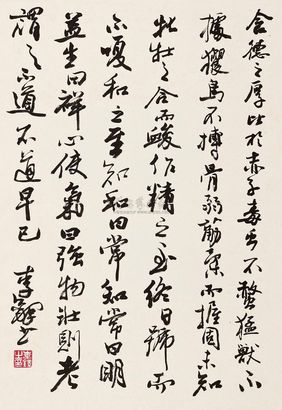 含德之厚比於赤子毒虫不螫猛獸不
據攫鳥不搏骨弱筋柔而握固未知
牝牡之合而朘作精之至終日號而
不嗄和之至知和曰常知常曰明
益生曰祥心使氣曰強物壯則老
謂之不道不道早已
李鐸书